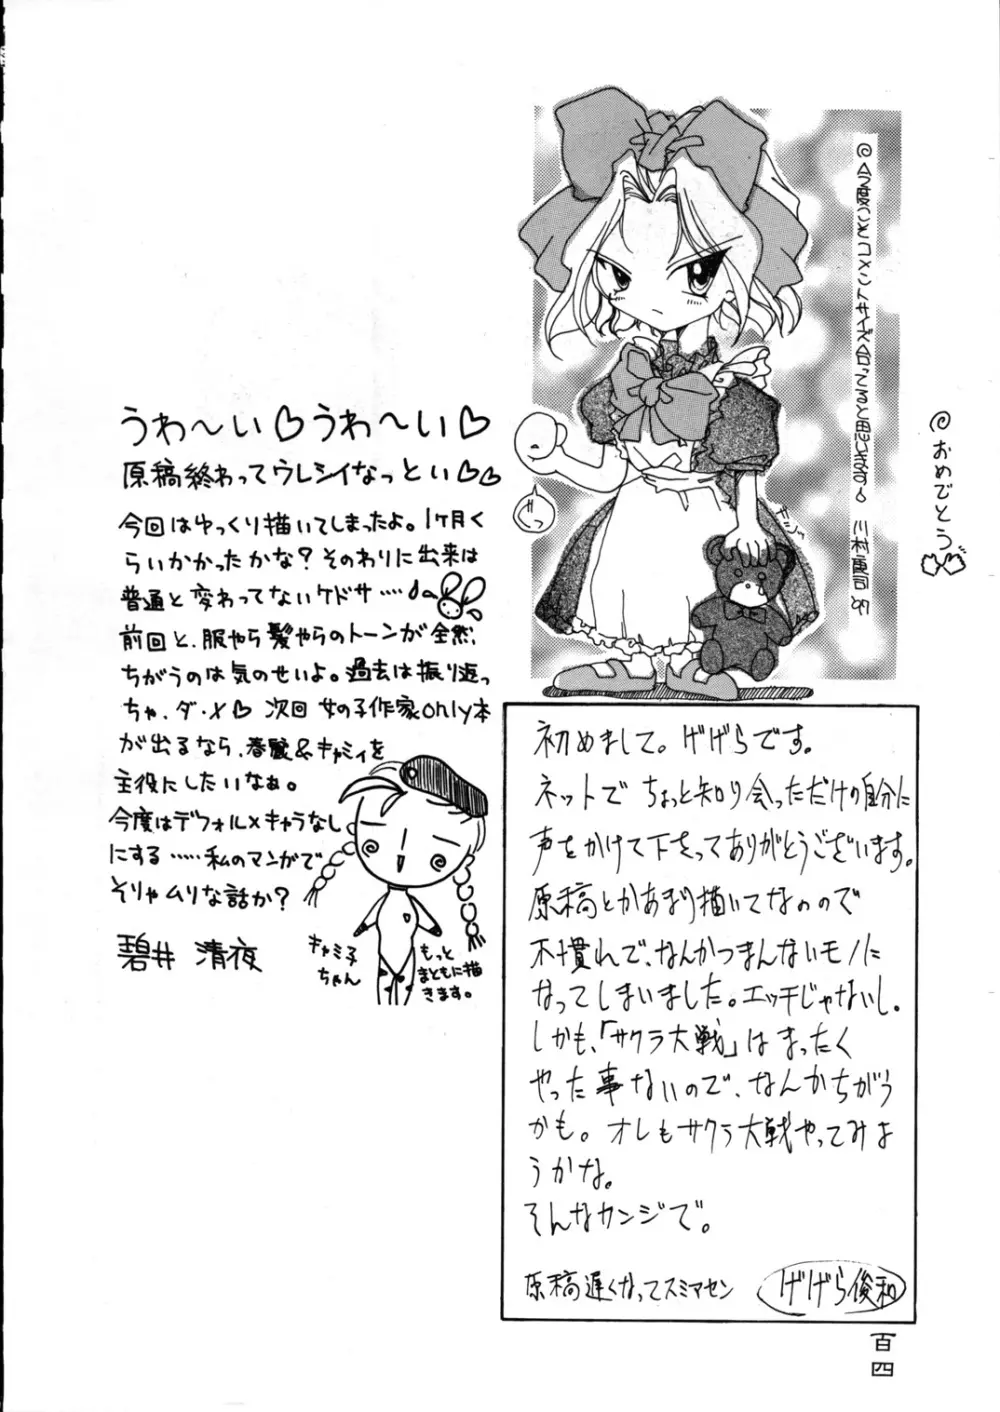 @今度こそコメントサイズ合ってると思います。 川村康司 '97
@おめでとう
ギュッ
うわ〜い♡うわ〜い♡
原稿終わってウレシイなっとい♡♡
今回はゆっくり描いてしまったよ。1ヶ月く
らいかかったかな?そのわりに出来は
普通と変わってないケドサ……
前回と、服やら髪やらのトーンが全然、
ちがうのは気のせいよ。過去は振り返っ
ちゃ、ダ・メ♡ 次回 女の子作家only本
が出るなら、春麗&キャミィを
主役にしたいなぁ。
今度はデフォルメキャラなし
にする……私のマンガで
そりゃムリな話か?
碧井 清夜
キャミ子
ちゃん
もっと
まともに描
きます。
初めまして。げげらです。
ネットでちょっと知り合っただけの自分に
声をかけて下さってありがとうございます。
原稿とかあまり描いてないので
不慣れで、なんかつまんないモノに
なってしまいました。エッチじゃないし。
しかも、「サクラ大戦」はまったく
やった事ないので、なんかちがう
かも。オレもサクラ大戦やってみよ
うかな。
そんなカンジで。
原稿遅くなってスミマセン
げげら俊和
百四